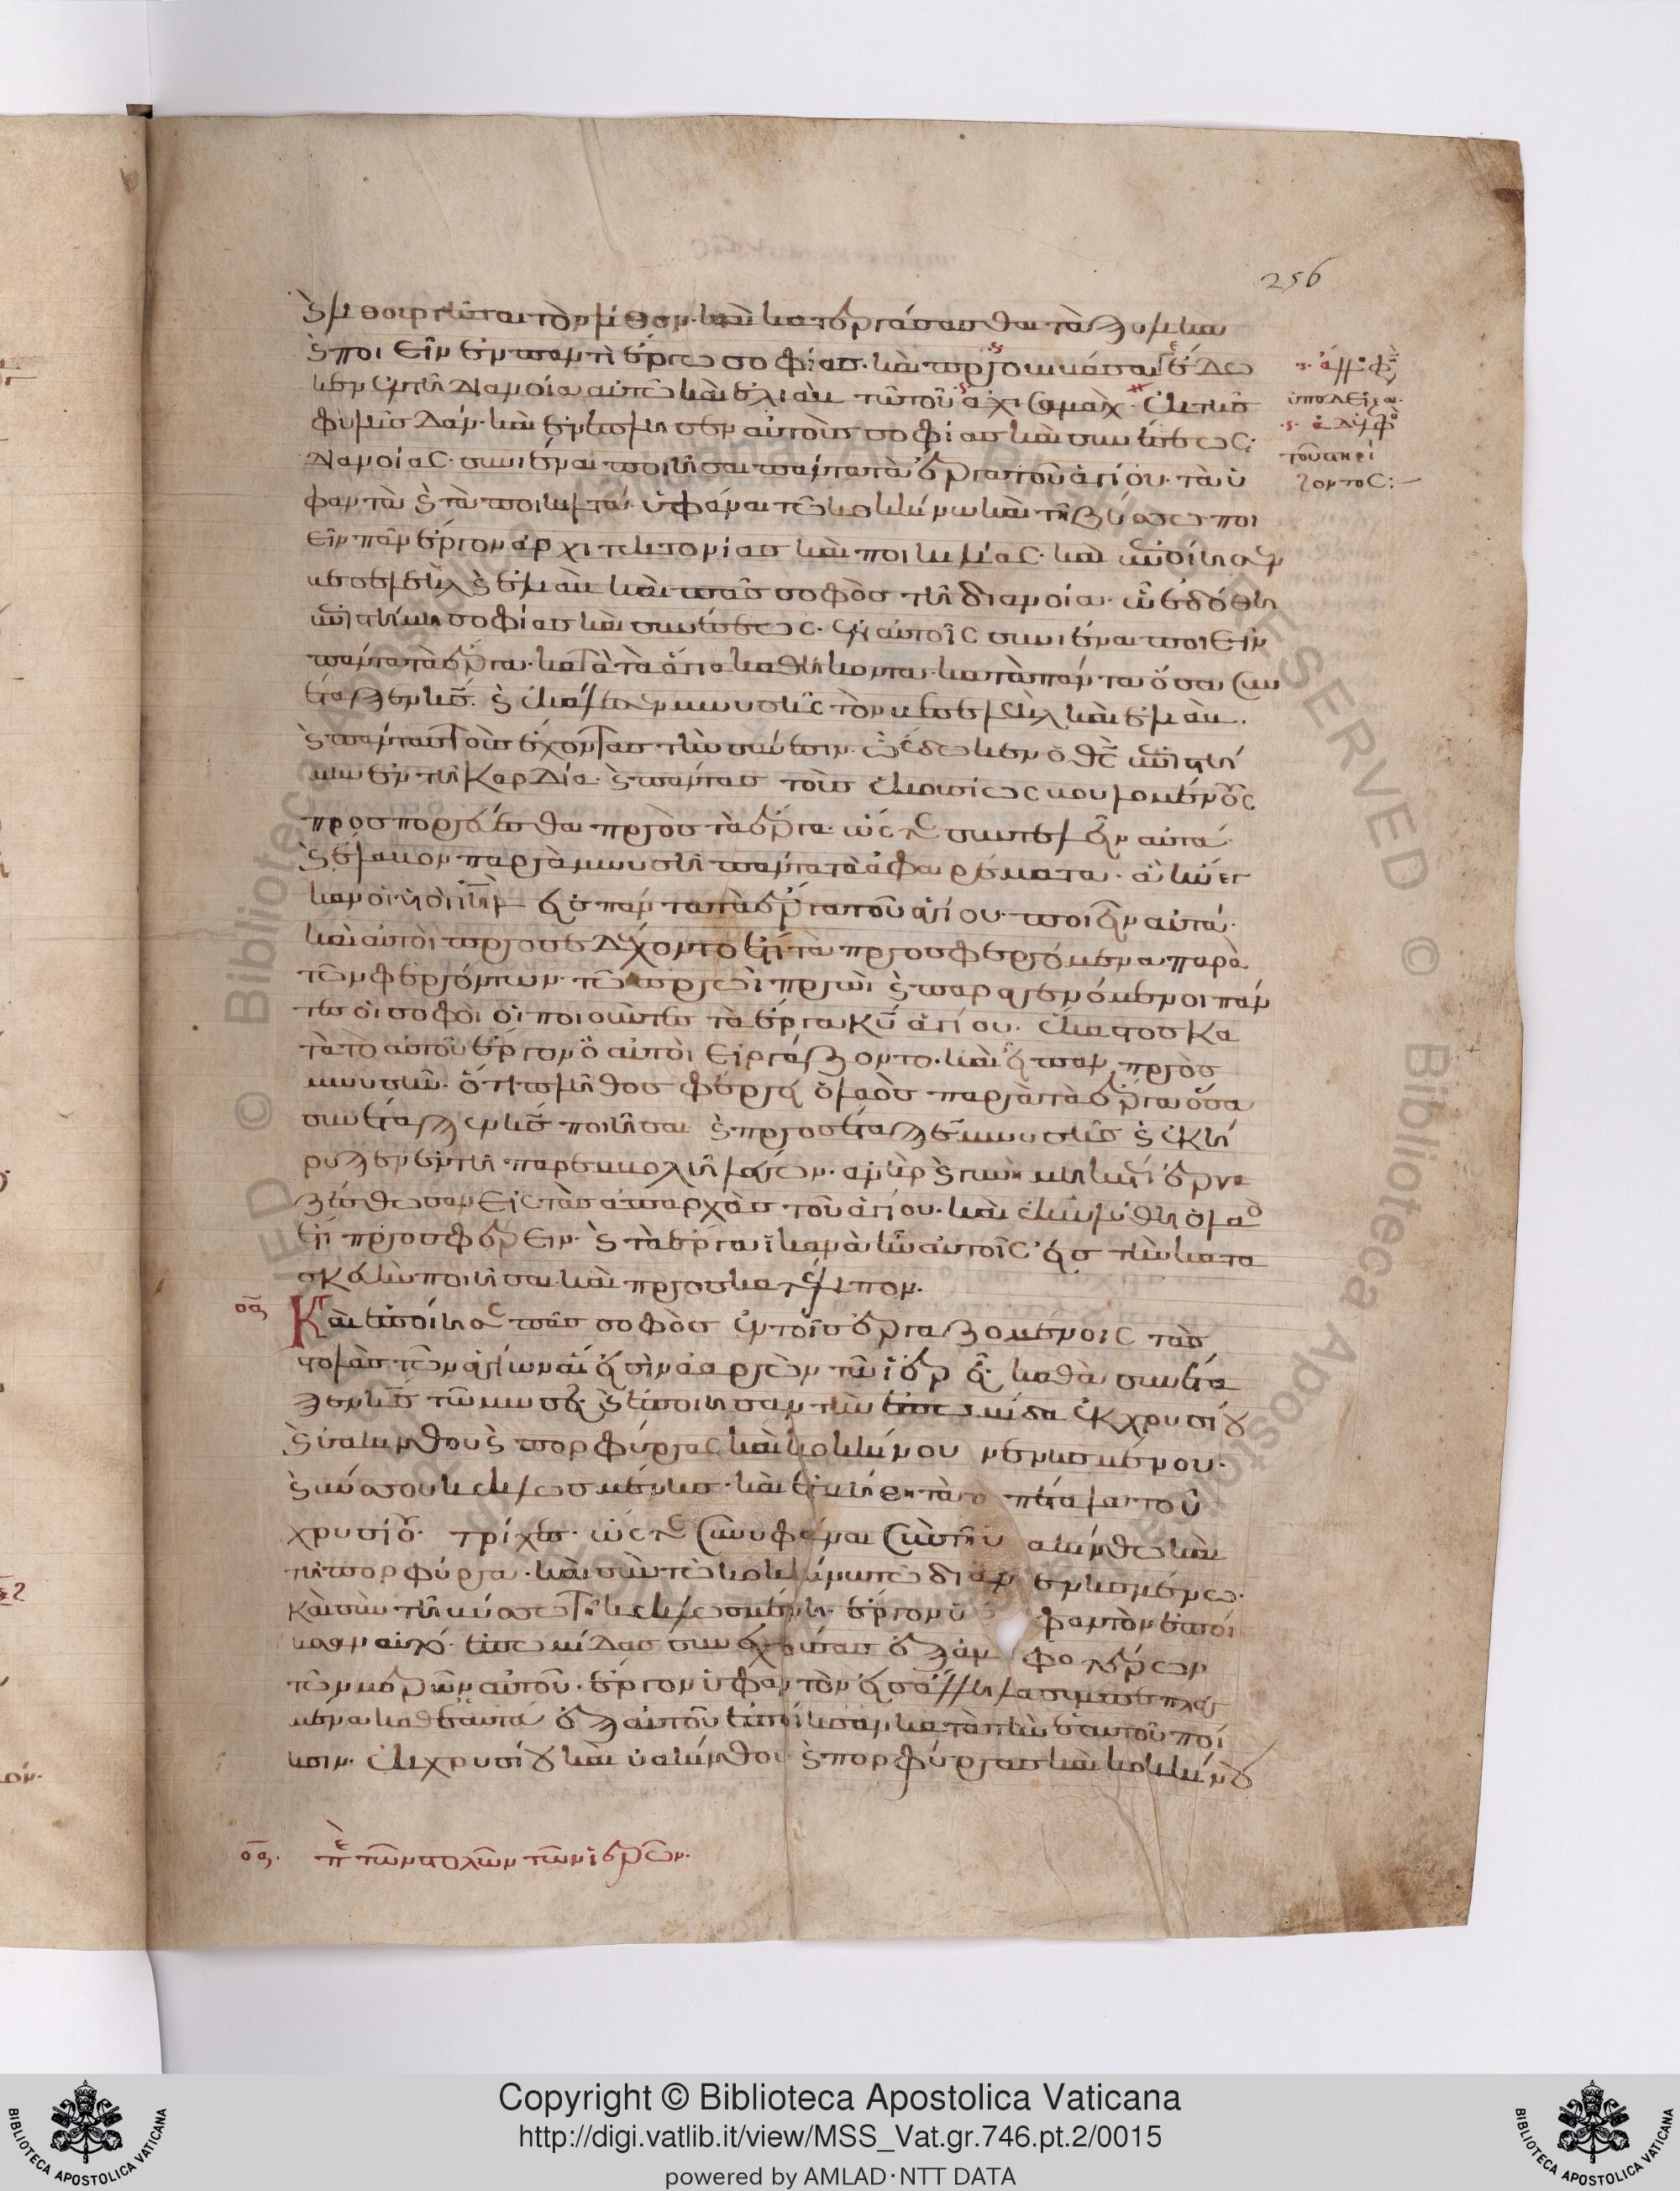 256
καὶ λιθουργῆσαι τὸν λίθον· καὶ κατεργάσασθαι τὰ ξύλα· καὶ
ποιεῖν ἐν παντὶ ἔργω σοφίας· καὶ προβιβάσαι γε ἔδω
κεν ἐν τῆ διανοία αὐτῶ καὶ ἐλιὰβ τῶ τοῦ ἀχισαμὰχ· ἐκ τῆς
φυλῆς δάν· καὶ ἐνέπλησεν αὐτοὺς σοφίας καὶ συνέσεως·
διανοίας· συνιέναι ποιῆσαι πάντα τὰ ἔργα τοῦ ἁγίου· τὰ ὑ
φαντὰ καὶ τὰ ποικιλτά· ὑφάναι τῶ κοκκίνω καὶ τῆ βύσσω· ποι
εῖν πᾶν ἔργον ἀρχιτεκτονίας καὶ ποικιλίας· καὶ ἐποίησεν
βεσελεὴλ καὶ ἐλιὰβ καὶ πᾶς σοφὸς τῆ διανοία· ὧ ἐδόθη
ἐπιστήμη σοφίας καὶ συνέσεως· ἐν αὐτοῖς συνιέναι ποιεῖν
πάντα τὰ ἔργα· κατὰ τὰ ἅγια καθήκοντα· κατὰ πάντα ὅσα συν
έταξεν κς· καὶ ἐκάλεσεν μωυσῆς τὸν βεσελεὴλ καὶ ἐλιὰβ·
καὶ πάντας τοὺς ἔχοντας τὴν σύνεσιν· ὧ ἔδωκεν ὁ θς ἐπιστή
μην ἐν τῆ καρδία· καὶ πάντας τοὺς ἑκουσίως βουλομένους
προσπορεύεσθαι πρὸς τὰ ἔργα· ὥστε συντελεῖν αὐτά·
καὶ ἔλαβον παρὰ μωυσῆ πάντα τὰ ἀφαιρέματα· ἃ ἤνεγ
καν οἱ υἱοὶ ιηλ εἰς πάντα τὰ ἔργα τοῦ ἁγίου· ποιεῖν αὐτά·
καὶ αὐτοὶ προσεδέχοντο ἔτι τὰ προσφερόμενα παρὰ
τῶν φερόντων· τῶ πρωὶ πρωὶ καὶ παρεγενόμενοι πάν
τες οἱ σοφοὶ οἱ ποιοῦντες τὰ ἔργα κυ ἁγίου· ἕκαστος κα
τὰ τὸ αὐτοῦ ἔργον ὃ αὐτοὶ εἰργάζοντο· καὶ εἶπαν πρὸς
μωυσῆν· ὅτι πλῆθος φέρει ὁ λαὸς παρὰ τὰ ἔργα ὅσα
συνέταξεν κς ποιῆσαι καὶ προσέταξε μωυσῆς καὶ ἐκή
ρυξεν ἐν τῆ παρεμβολῆ λέγων· ἀνὴρ καὶ γυνὴ μηκέτι ἐργα
ζέσθωσαν εἰς τὰς ἀπαρχὰς τοῦ ἁγίου· καὶ ἐκωλύθη ὁ λαὸ
ἔτι προσφέρειν· καὶ τὰ ἔργα ἱκανὰ ἦν αὐτοῖς εἰς τὴν κατα
σκευὴν ποιῆσαι καὶ προσκατέλιπον·
Καὶ ἐποίησε πᾶς σοφὸς ἐν τοῖς ἐργαζομένοις τὰς
στολὰς τῶν ἁγίων αἵ εἰσιν ἀαρὼν τῶ ἱερεῖ· καθὰ συνέτα
ξεν κς τῶ μωσῆ· καὶ ἐποίησαν τὴν ἐπωμίδα ἐκ χρυσίου
καὶ ὑακίνθου καὶ πορφύρας καὶ κοκκίνου νενησμένου·
καὶ βύσσου κεκλωσμένης· καὶ ἐτμήθη τὰ πέταλα τοῦ
χρυσίου· τρίχες· ὥστε συνυφάναι σὺν τῆ ὑακίνθω καὶ
τῆ πορφύρα· καὶ σὺν τῶ κοκκίνω τῶ διανενησμένω·
καὶ σὺν τῆ βύσσω τῆ κεκλωσμένη· ἔργον ὑφαντὸν ἐποί
ησαν αὐτό· ἐπωμίδας συνεχούσας ἐξ ἀμφοτέρων
τῶν μερῶν αὐτοῦ· ἔργον ὑφαντὸν εἰς ἄλληλα συμπεπλεγ
μένα καθ ἑαυτό ἐξ αὐτοῦ ἐποίησαν κατὰ τὴν ἑαυτοῦ ποί
ησιν· ἐκ χρυσίου καὶ ὑακίνθου καὶ πορφύρας καὶ κοκκίνου
τοῦ ἁγιά
ζοντος:
οα
οα· πε τῶν στολῶν τῶν ἱερέων·
Copyright © Biblioteca Apostolica Vaticana
http://digi.vatlib.it/view/MSS_Vat.gr.746.pt.2/0015
powered by AMLAD·NTT DATA
BIBLIOTECA APOSTOLICA VATICANA
BIBLIOTECA APOSTOLICA VATICANA